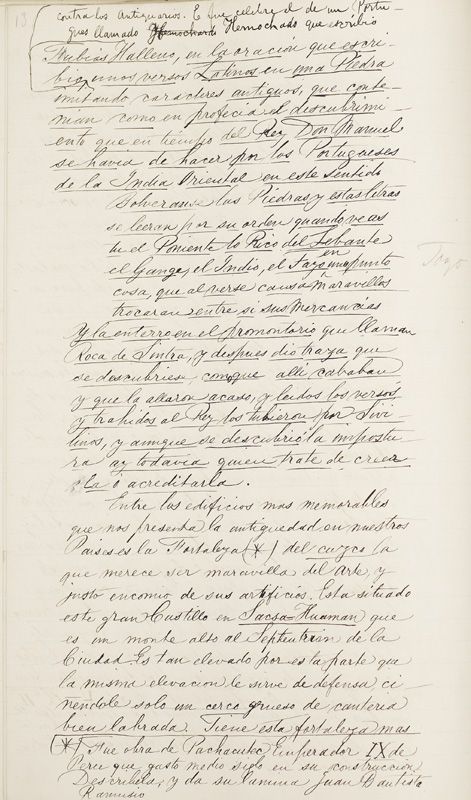 13
contra los Antiquarios. Es fue celebre el de un Portu-
gues llamado Hemochado que escribio
Nubias Malleno, en la oracion que escri-
bio, unos versos Latinos en una Piedra
imitando caracteres antiguos, que conte-
nian como en profecia el descubrimi-
ento que en tiempo del Rey Don Manuel
se havia de hacer por los Portugueses
de la India Oriental en este sentido
Solveranse las Piedras y estas letras
se leeran por su orden quando veas
tu el Poniente lo Rico del Lebante
el Gange, el Indio, el Tajo en un punto
cosa, que al verse causa maravillos
trocaran entre si sus Mercancias
Tajo
Y la enterro en el promontorio que llaman
Roca de Sintra, y despues dio traza que
se descubriese, conque alli cababan
y que la allaron acaso, y leidos los versos,
y trahidos al Rey los tubieron por Sivi-
linos, y aunque se descubrió la impostu-
ra ay todavia quien trate de creer
la o acreditarla.
Entre los edificios mas memorables
que nos presenta la antiguedad en nuestros
Paises es la Fortaleza (*) del cuzco la
que merece ser maravilla del Arte, y
justo encomio de sus artificios. Esta situado
este gran Castillo en Sacsa-Huaman que
es un monte alto al Septentrion de la
Ciudad. Es tan elevado por esta parte que
la misma elevacion le sirve de defensa, ci-
ñendole solo un cerco grueso de canteria
bien labrada. Tiene esta fortaleza mas
(*) Fue obra de Pachacutec Emperador IX de
Peru que gastó medio siglo en su construccion
Describela, y da su lamina Juan Bautista
Ramusio